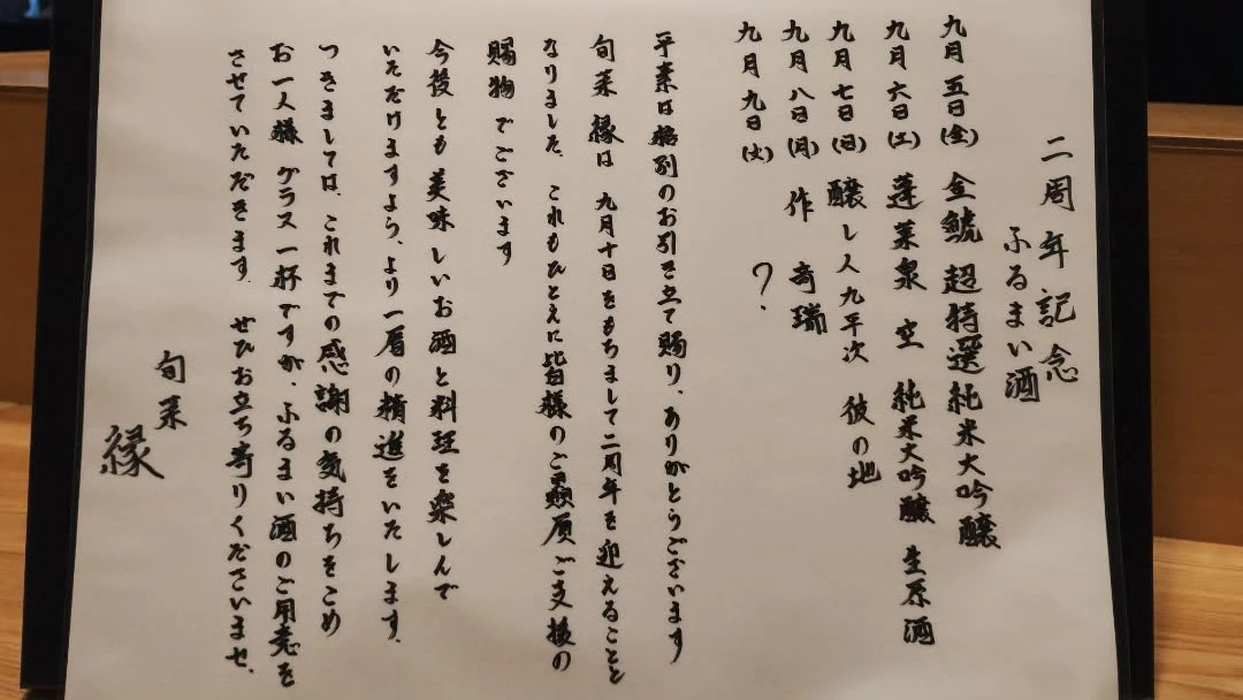 二周年記念
ふるまい酒
九月五日(金) 金鯱 超特選 純米大吟醸
九月六日(土) 蓬莱泉 空 純米大吟醸 生原酒
九月七日(日) 醸し人九平次 彼の地
九月八日(月) 作 奇瑞
九月九日(火) ?
平素は格別のお引き立て賜り、ありがとうございます
旬菜 縁は 九月十日をもちまして二周年を迎えることと
なりました。これもひとえに皆様のご愚顧ご支援の
賜物でございます
今後とも美味しいお酒と料理を楽しんで
いただけますよう、より一層の精進をいたします。
つきましては、これまでの感謝の気持ちをこめ
お一人様 グラス一杯ですが、ふるまい酒のご用意を
させていただきます。ぜひお立ち寄りくださいませ。
旬菜
縁